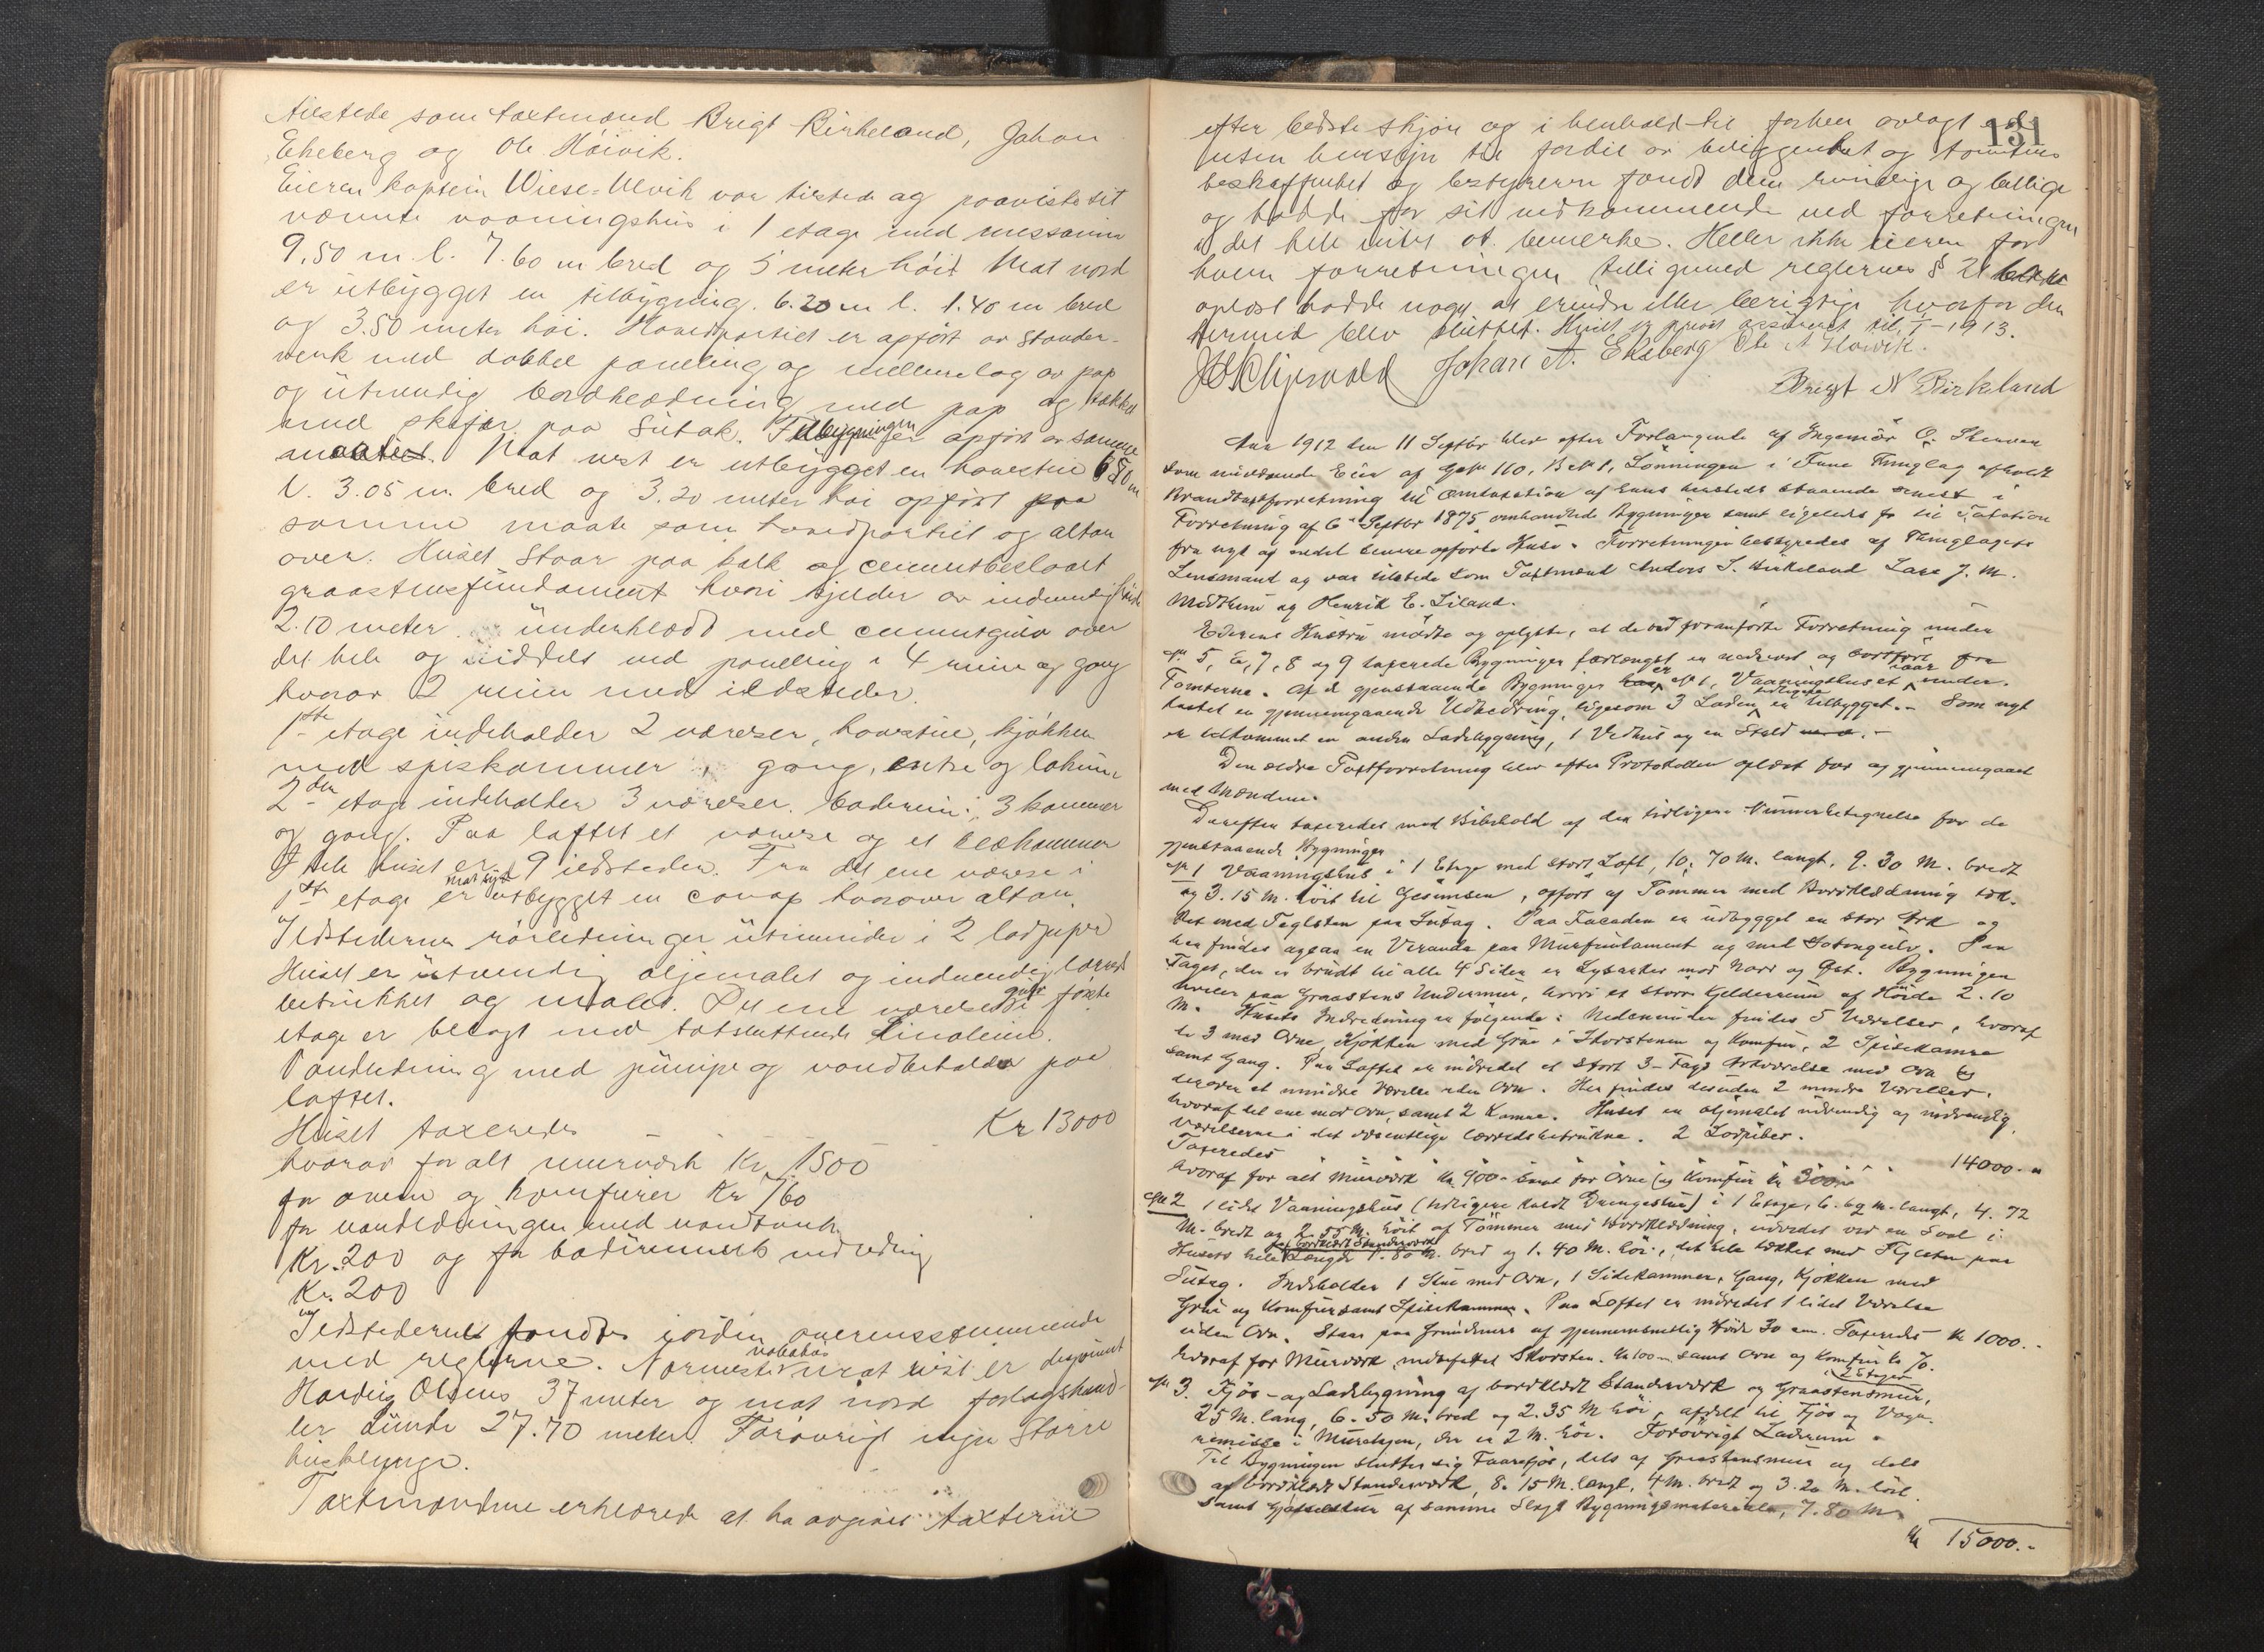 tilstede som taxtmænd Brigt Birkeland, Johan
Ekeberg og Ole Höivik.
Eieren kaptein Wiese-Ulvik var tilstede og paaviste sit
nævnte vaaningshus i 1 etage med messanin
9.50 m l. 7.60 m bred og 5 meter höit Mot nord
er utbygget en tilbygning. 6.20 m l. 1.40 m bred
og 3.50 meter höi. Hovedpartiet er opfört av stonder-
verk med dobbel paneling og mellemlag av pap
og utvendig bordklædning med pap og tækket
med skifer paa Sutak. Tilbygningen er opfört av samme
materiel. Mot vest er utbygget en havestue 6.50 m
l. 3.05 m. bred og 3.20 meter höi opfört paa
samme maate som hovedpartiet og altan
over. Huset staar paa kalk og cementbeslaaet
graastensfundament hvori kjelder av indvendig höide
2.10 meter underklædd med cementgulv over
det hele og inddelt med panelling i 4 rum og gang
hvorav 2 rum med ildsteder.
1ste etage indeholder 2 værelser, havestue, kjökken
med spiskammer, gang, entre og lokum
2den etage indeholder 3 værelser. baderum, 3 kammer
og gang. Paa loftet et værelse og et klækammer
I hele huset er 9 ildsteder. Fra det ene værelse i
1ste etage er mot syd utbygget en carnap hvorover altan.
Ildstederne rörledninger utmunder i 2 lodpiper
Huset er utvendig oljemalet og indvendig lærred
betrukket og malet. Det ene værelses gulv i förste
etage er belagt med tætsluttende Linoleum.
Vandledning med pumpe og vandbeholder paa
loftet.
Huset taxeredes Kr 13000
hvorav for alt murverk Kr. 1500
for ovne og komfurer Kr 760
for vandledningen med vandtank
Kr. 200 og for badeværelsets indredning
Kr. 200
Ildstederne fandtes iorden overensstemmende
med reglerne. Nærmeste nabohus mot vest er disponent
Harding Olsens 37 meter og mot nord forlagshand-
ler Sunde 27.70 meter. Forövrigt ingen Större
husklynge.
Taxtmændene erklærede at ha avgivet taxterne
131
efter bedste skjön og i henhold til forhen avlagt ed
uten hensyn til fordel av beliggenhet og tomtens
beskaffenhet og bestyreren fandt dem rimelige og billige
og hadde for sit vedkommende ved forretningen
i det hele intet at bemerke. Heller ikke eieren for
hvem forretningen tilligemed reglernes § 21
oplæst hadde noget at erindre eller berigtige hvorfor den
dermed blev sluttet. Huset er provis assureret til 1/1-1913.
Johan A. Ekeberg Ole A Höivik.
Brigt N Birkeland
Aar 1912 den 11 Septbr blev efter Forlangende af Ingeniör O. Skerven
som nuværende Eier af Gno 110, Bno 1, Lönningen i Fane Thinglag afholdt
Brandtaxtforretning til Omtaxation af hans hersteds staaende senest i
Forretning af 6te Septbr 1875 omhandlede Bygninger samt ligeledes fo til Taxation
fra nyt af endel senere opförte Huse. Forretningen bestyredes af Thinglagets
Lensmand og var tilstede som Taxtmænd Anders S. Birkeland Lars J. M.
Midttun og Henrik E. Liland.
Eierens Hustru mödte og oplyste, at de ved foranförte Forretning under
No 5, 6, 7, 8 og 9 taxerede Bygninger forlængst er nedrevet og bortfört fra
Tomterne. Af de gjenstaaende Bygninger er No 1, Vaaningshuset iaar under-
kastet en gjennemgaaende Udbedring, ligesom 3 Laden tidligere er tilbygget. Som nyt
er tilkommet en anden Ladebygning, 1 Vedhus og en Stald.
Den ældre Taxtforretning blev efter Protokollen oplæst for og gjennemgaaet
med Mændene.
Derefter taxeredes med Bibehold af den tidligere Nummerbetegnelse for de
gjenstaaende Bygninger
No 1 Vaaningshus i 1 Etage med stort Loft, 10.70 M. langt, 9.30 M. bredt
og 3.15 M. höit til Gesimsen, opfört af Tömmer med Bordklædning tæk-
ket med Teglsten paa Sutag. Paa Facaden er udbygget en stor Ark og
her findes ogsaa en Veranda paa Murfundament og med Betongulv. Paa
Taget, der er brudt til alle 4 Sider er Lysarker mod Nord og Öst. Bygningen
hviler paa Graastens Undermur, hvori et stort Kjelderrum af Höide 2.10
M. Husets Indredning er fölgende: Nedenunder findes 5 Værelser, hvoraf
de 3 med Ovne, Kjökken med Grue i Skorstenen og Komfur, 2 Spisekamre
samt Gang. Paa Loftet er indredet et stort 3-Fags Arkværelse med Ovn og
derover et mindre Værelse uden Ovn. Her findes desuden 2 mindre Værelser,
hvoraf det ene med Ovn, samt 2 Kamre. Huset er oljemalet udvendig og indvendig,
Værelserne i det væsentlige lærredsbetrukne. 2 Lodpiber.
Taxeredes 14000.-
hvoraf for alt Murværk Kr. 900.- samt for Ovne og Komfur Kr 300.-
No 2 1 lidet Vaaningshus (tidligere kaldt Drengestue) i 1 Etage, 6.69 M. langt, 4.72
M. bredt og 2.55 M. höit af Tömmer med Bordklædning, udvidet ved en Sval i
Husets hele Længde af bordklædt Standerværk 1.80 M. bred og 1.40 M. höi, det hele tækket med Teglsten paa
Sutag. Indeholder 1 Stue med Ovn, 1 Sidekammer, Gang, Kjökken med
Grue og Komfur samt Spisekammer. Paa Loftet er indredet 1 lidet Værelse
uden Ovn. Staar paa Grundmur af gjennemsnitlig Höide 30 cm. Taxeredes Kr 1000.-
hvoraf for Murværk indbefattet Skorsten Kr 100.- samt Ovn og Komfur Kr 70.
No 3. Fjös- og Ladebygning af bordklædt Standerværk og Graastensmur, i 2 Etager
25 M. lang, 6.50 M. bred og 2.35 M höi, afdelt til Fjös og Vogn-
remisse i Muretagen, der er 2 M. höi. Forövrigt Laderum.
Til Bygningen slutter sig Faarefjös, dels af Graastensmur og dels
af bordklædt Standerværk, 8.15 M. langt, 4 M. bredt og 3.20 M. höit.
Samt Gjödselskur af samme Slags Bygningsmateriale, 7.80 M.
Kr 15000.-